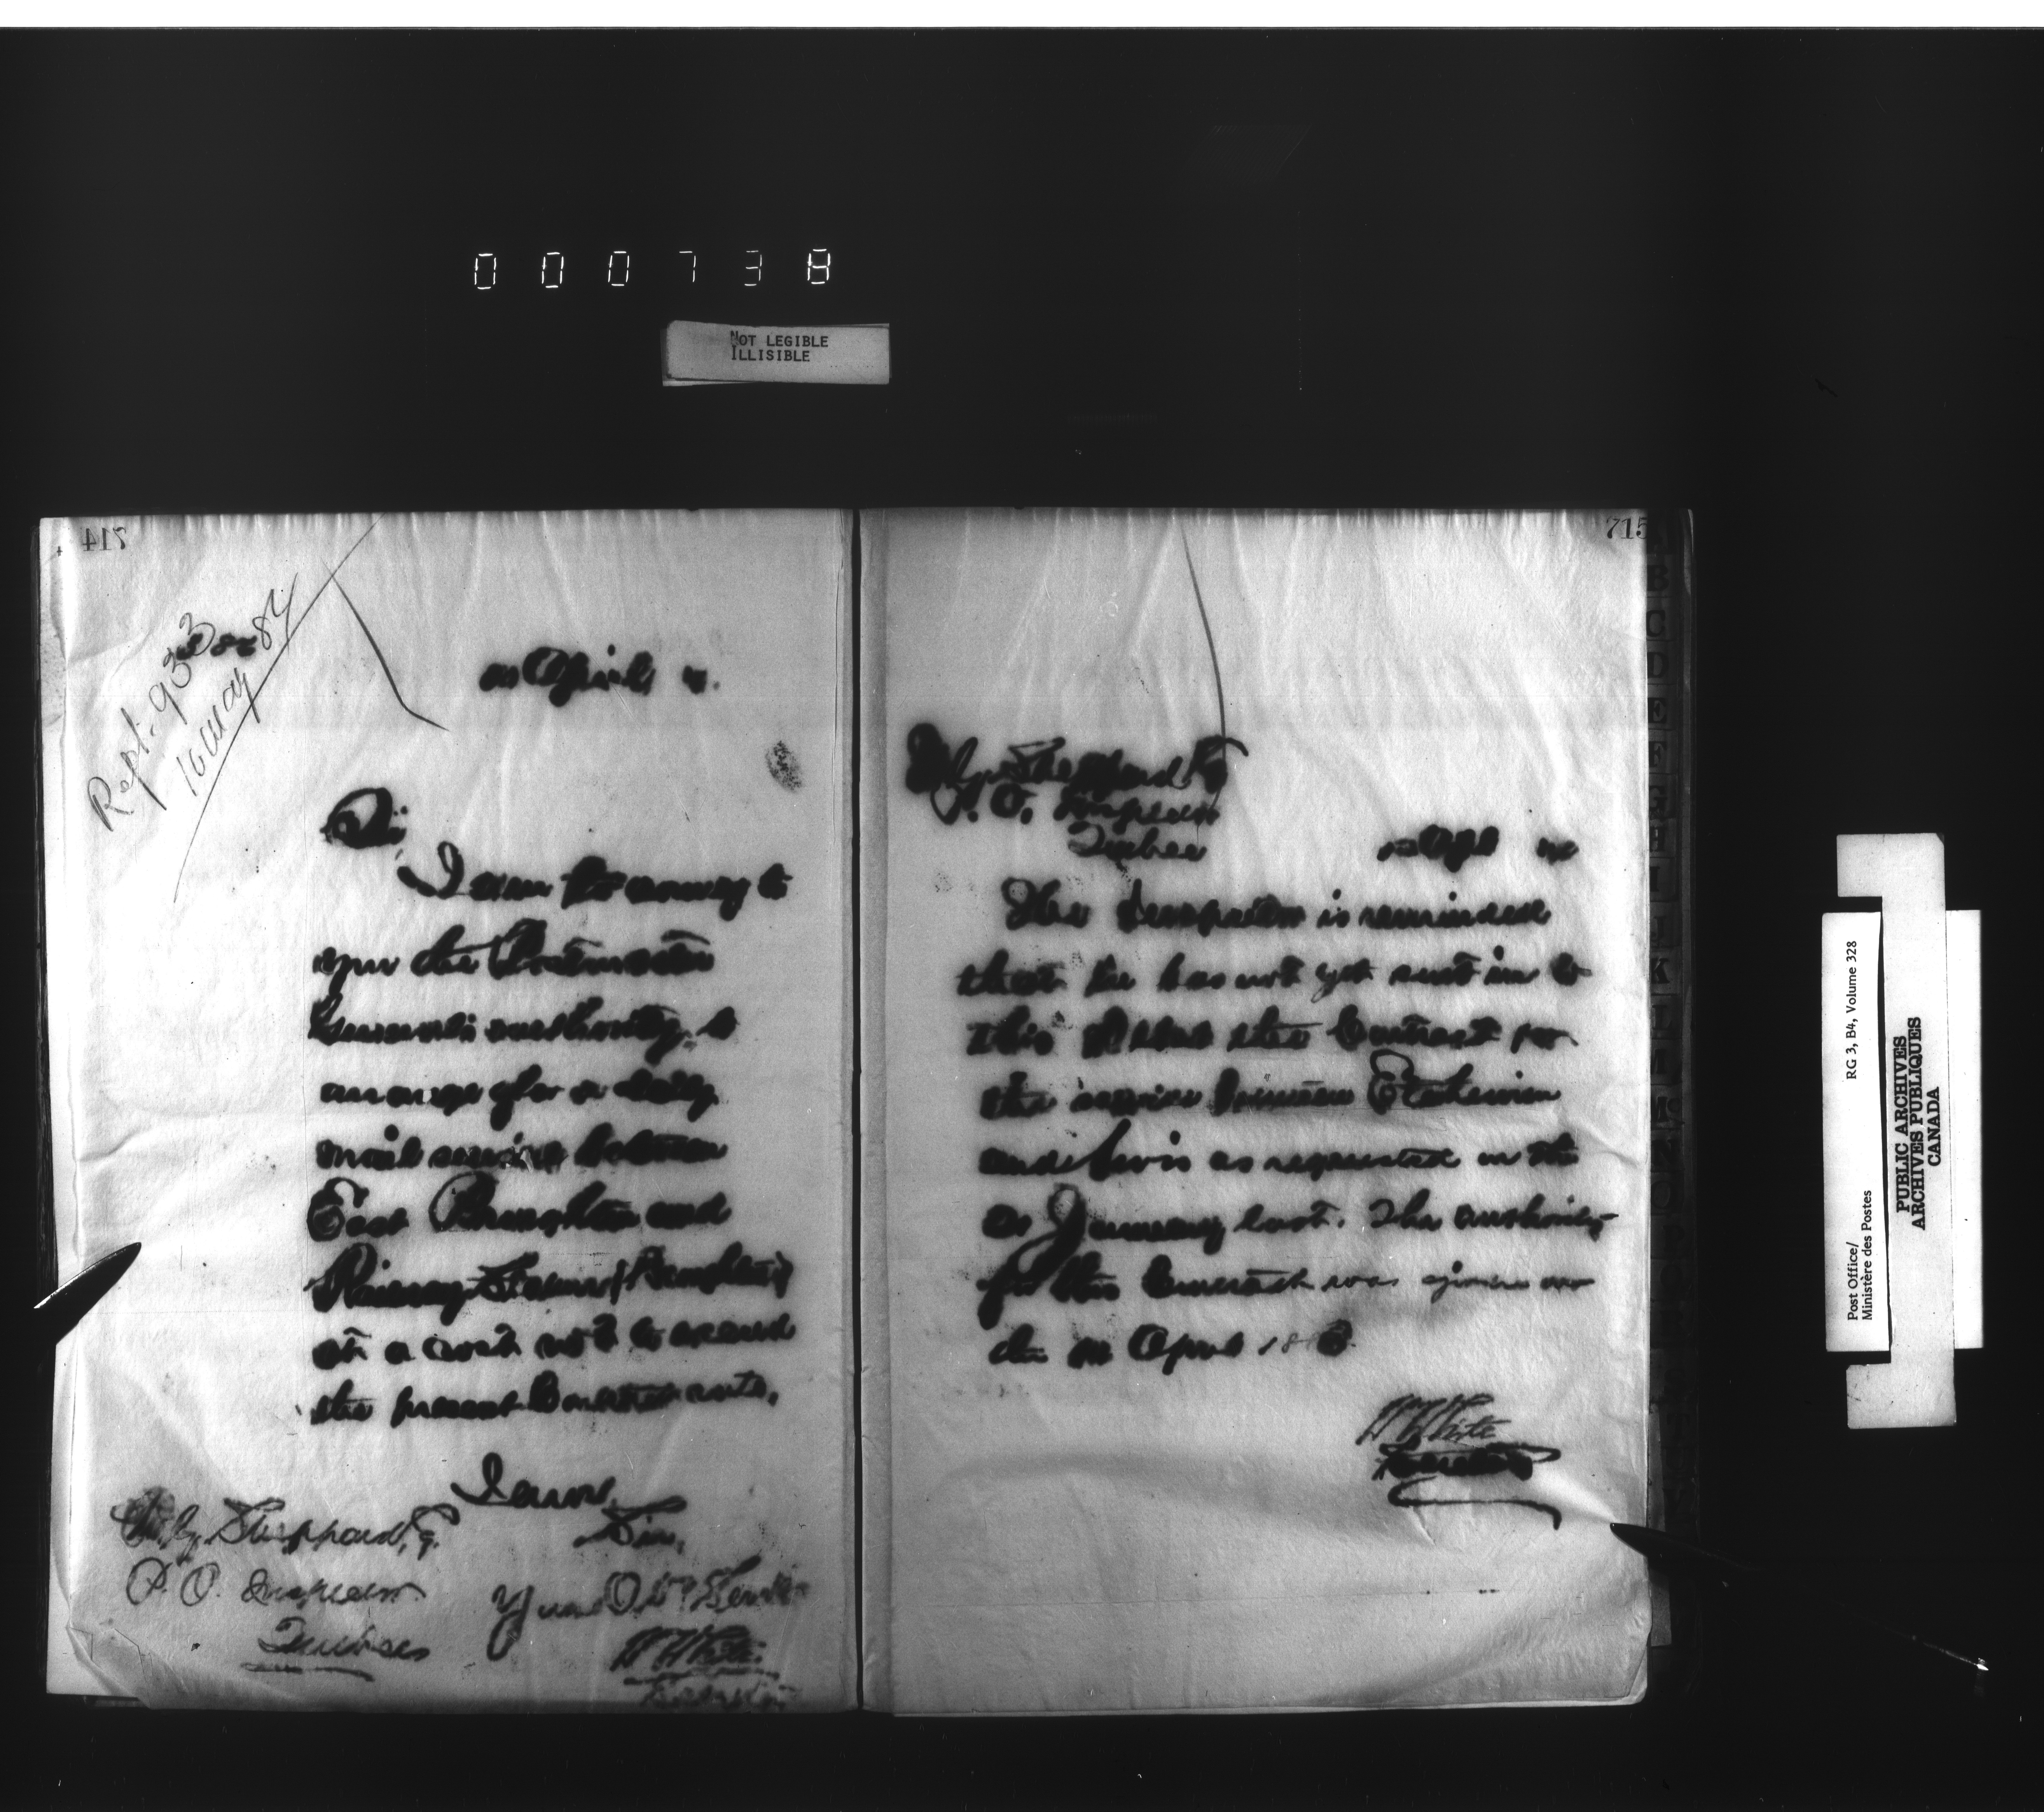 000738
NOT LEGIBLE
ILLISIBLE
714
Rept. 93
16 May 84
April
Sir,
I am to convey to
you the Postmaster
General's authority to
arrange for a daily
mail service between
East Broughton and
Broughton
at a cost not to exceed
the present Contract rate.
I am,
Sir,
Your Obt. Servt.
W White
Secretary
Sheppard,
P. O. Inspector
Quebec
715
Sheppard
P. O. Inspector
Quebec
Apl
The Inspector is reminded
that he has not yet sent in to
this Office the Contract for
the service between Etchemin
and Levis as requested on the
January last. The authority
for this Contract was given on
the April 188
W White
Secretary
B
C
D
E
F
G
H
I
J
K
L
M
Mc
N
O
Post Office/
Ministère des Postes
RG 3, B4, Volume 328
PUBLIC ARCHIVES
ARCHIVES PUBLIQUES
CANADA